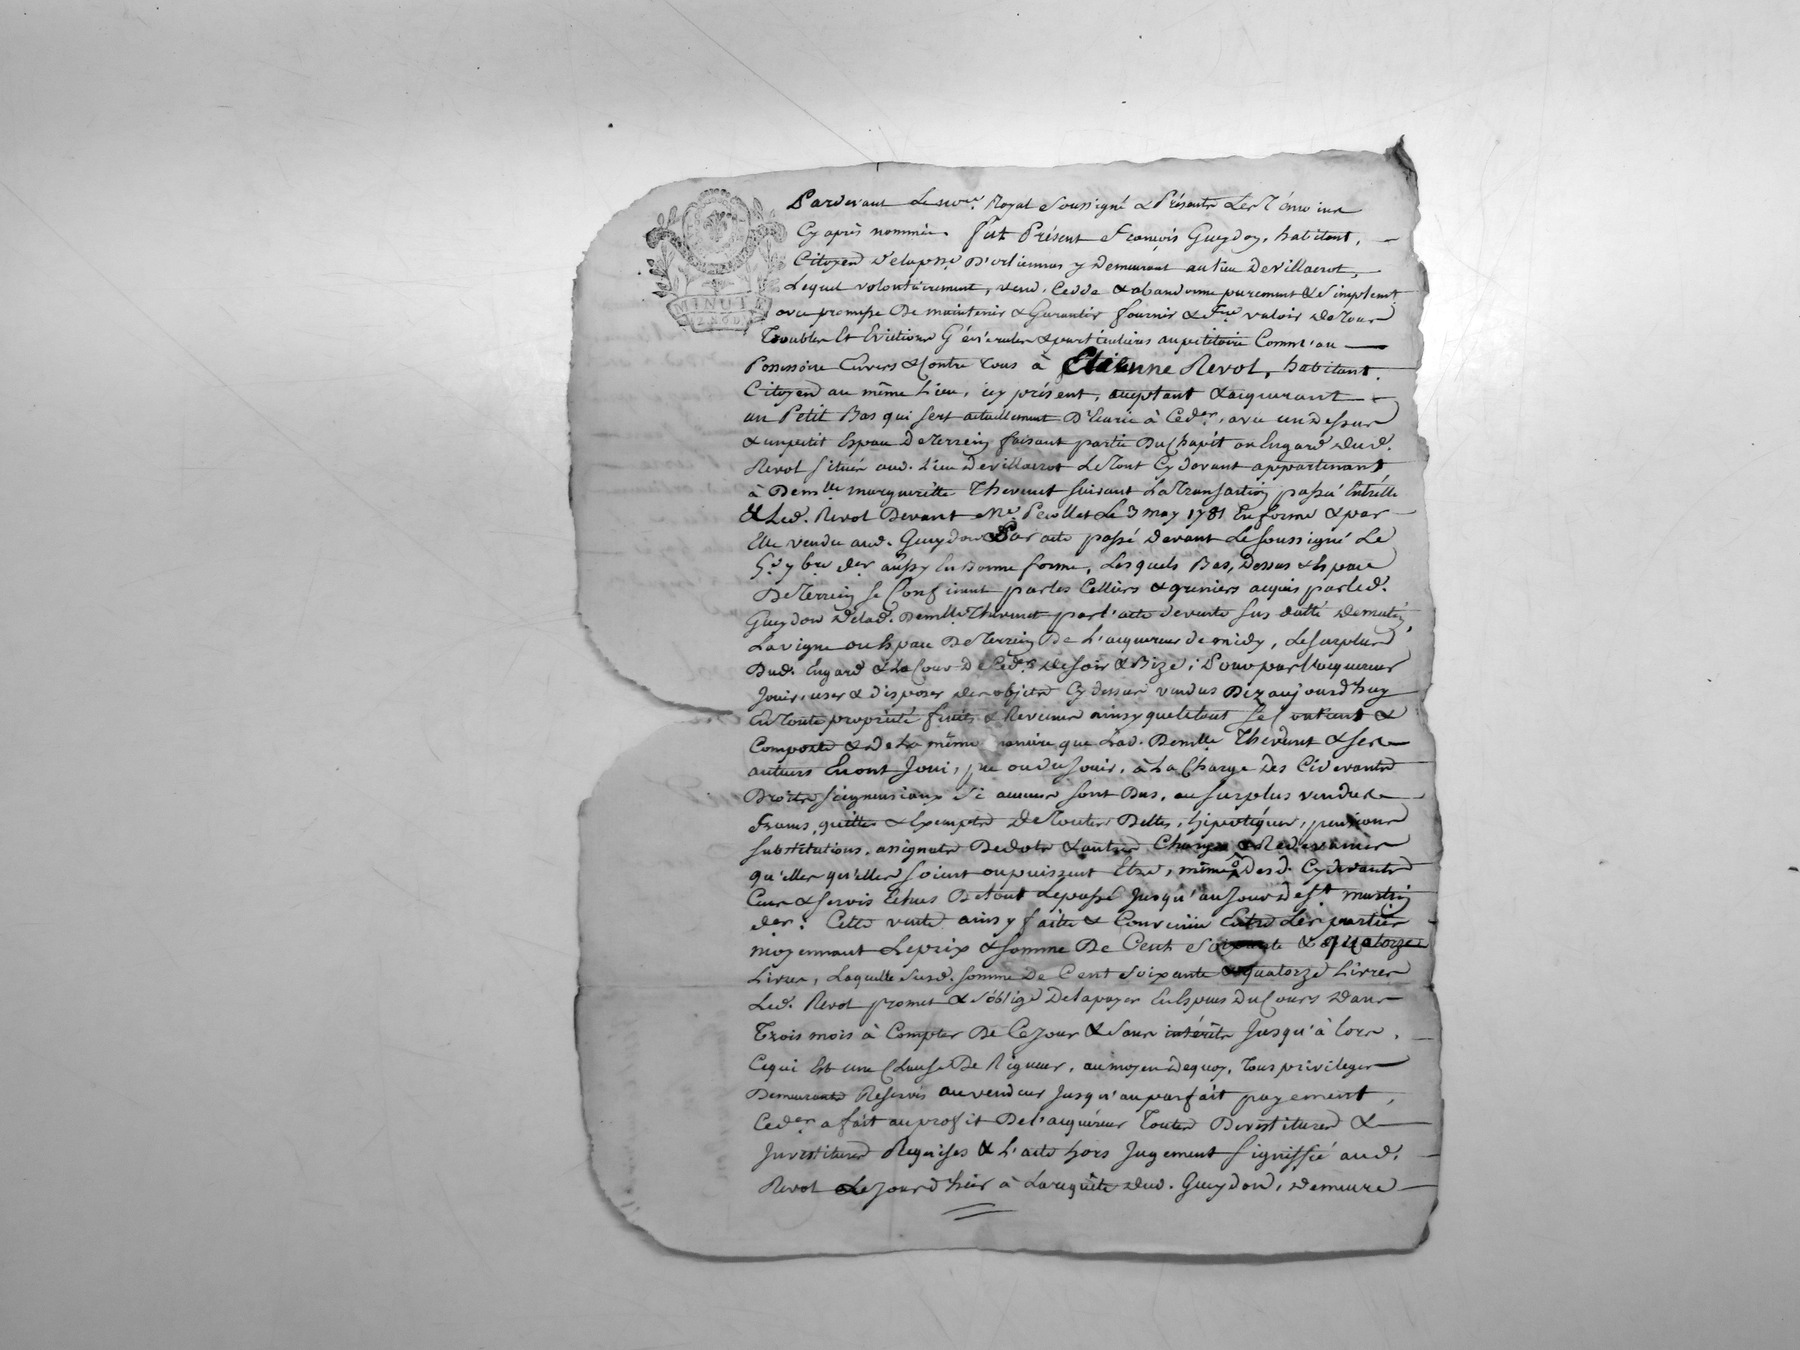 MINUTE
Pardevant Le no.re Royal Soussigné & Présents Les Témoins
Cy après nommés. Fut Présent François Gueydon, habitant,
Citoyen Demeurant au lieu De Villaerot,
Lequel volontairement, vend, Cedde & abandonne purement & Simplem.t
avec promesse De maintenir & Garantir fournir & f.re valoir De Tous
Troubles Et Evictions Générales & particulières au pétitoire Comm'au
Possessoire Envers & Contre Tous à Etienne Revol, habitant
Citoyen au même Lieu, icy présent, acceptant & acquerant
un Petit Bas qui sert actuellement D'Ecurie à Ced.er, avec un Dessus
& un petit Espace De Terrein faisant partie Du Chapit ou Engard dud.
Revol situés aud. Lieu de villaerot Le Tout Cy devant appartenant
à Dem.lle margueritte Thevenet suivant La Transaction passée Entr'elle
& Led. Revol Devant M.e Pecollet Le 3 may 1781 En forme & par
Elle vendu aud. Gueydon Par acte passé Devant Le soussigné Le
9.bre der aussy En Bonne forme, Lesquels Bas, Dessus & Espace
De Terrein se Confinent par les Celliers & greniers acquis par led.
Gueydon De lad. Dem.lle Thevenet par l'acte de vente sus datté De matin,
La vigne ou Espace De Terrein De L'acquereur de midy, Le surplus
Dud. Engard & La Cour De Ced.er De soir & Bize; Pour par l'acquereur
Jouir, user & disposer des objets Cy dessus vendus Dez aujourd'huy
En Toute propriété fruits & Revenus ainsy que le tout se Contient &
Comporte & De La même manière que Lad. Demlle Thevenet & ses
auteurs En ont Joui, pu ou du Jouir, à La Charge Des Cidevants
Droits seigneuriaux Si aucuns sont Dus, au surplus vendus
francs, quittes & Exempts De Toutes Dettes, hipotéques, pensions
substitutions, assignats De dots & autres Charges & Redevances
qu'elles qu'elles soient ou puissent Etre, même Desd. Cydevants
Cens & servis Echus De tout Le passé Jusqu'au Jour De s.t martin
der. Cette vente ainsy faite & Convenüe Entre Les parties
moyennant Le prix & somme De Cent Soixante & quatorze
Livres, Laquelle susd. somme De Cent Soixante & quatorze Livres
Led. Revol promet & s'oblige De la payer En Espèces Du Cours Dans
Trois mois à Compter De Ce Jour & Sans intérêts Jusqu'à lors,
Ce qui Est une Clause De Rigueur, au moyen De quoy, Tous privileges
Demeurants Reservés au vendeur Jusqu'au parfait payement,
Ced.er a fait au profit De l'acquéreur Toutes Devestitures &
Investitures Requises & L'acte hors Jugement signiffié aud.
Revol Le Jour d'hier à La requête dud. Gueydon, Demeure